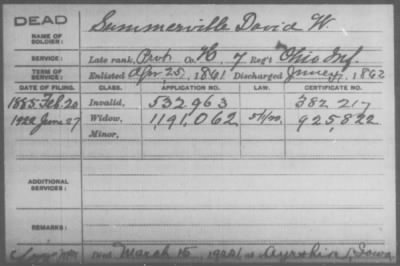 DEAD
NAME OF SOLDIER: Summerville David W.
SERVICE: Late rank, Prvt Co. H, 7 Reg't Ohio Inf.
TERM OF SERVICE: Enlisted Apr 25, 1861 Discharged 1862
DATE OF FILING. CLASS. APPLICATION NO. LAW. CERTIFICATE NO.
1885 Feb. 20 Invalid, 532963 382217
June 27 Widow, 1191,062 925,822
Minor,
ADDITIONAL SERVICES:
REMARKS:
Died March 15, at Ayrshire, Iowa